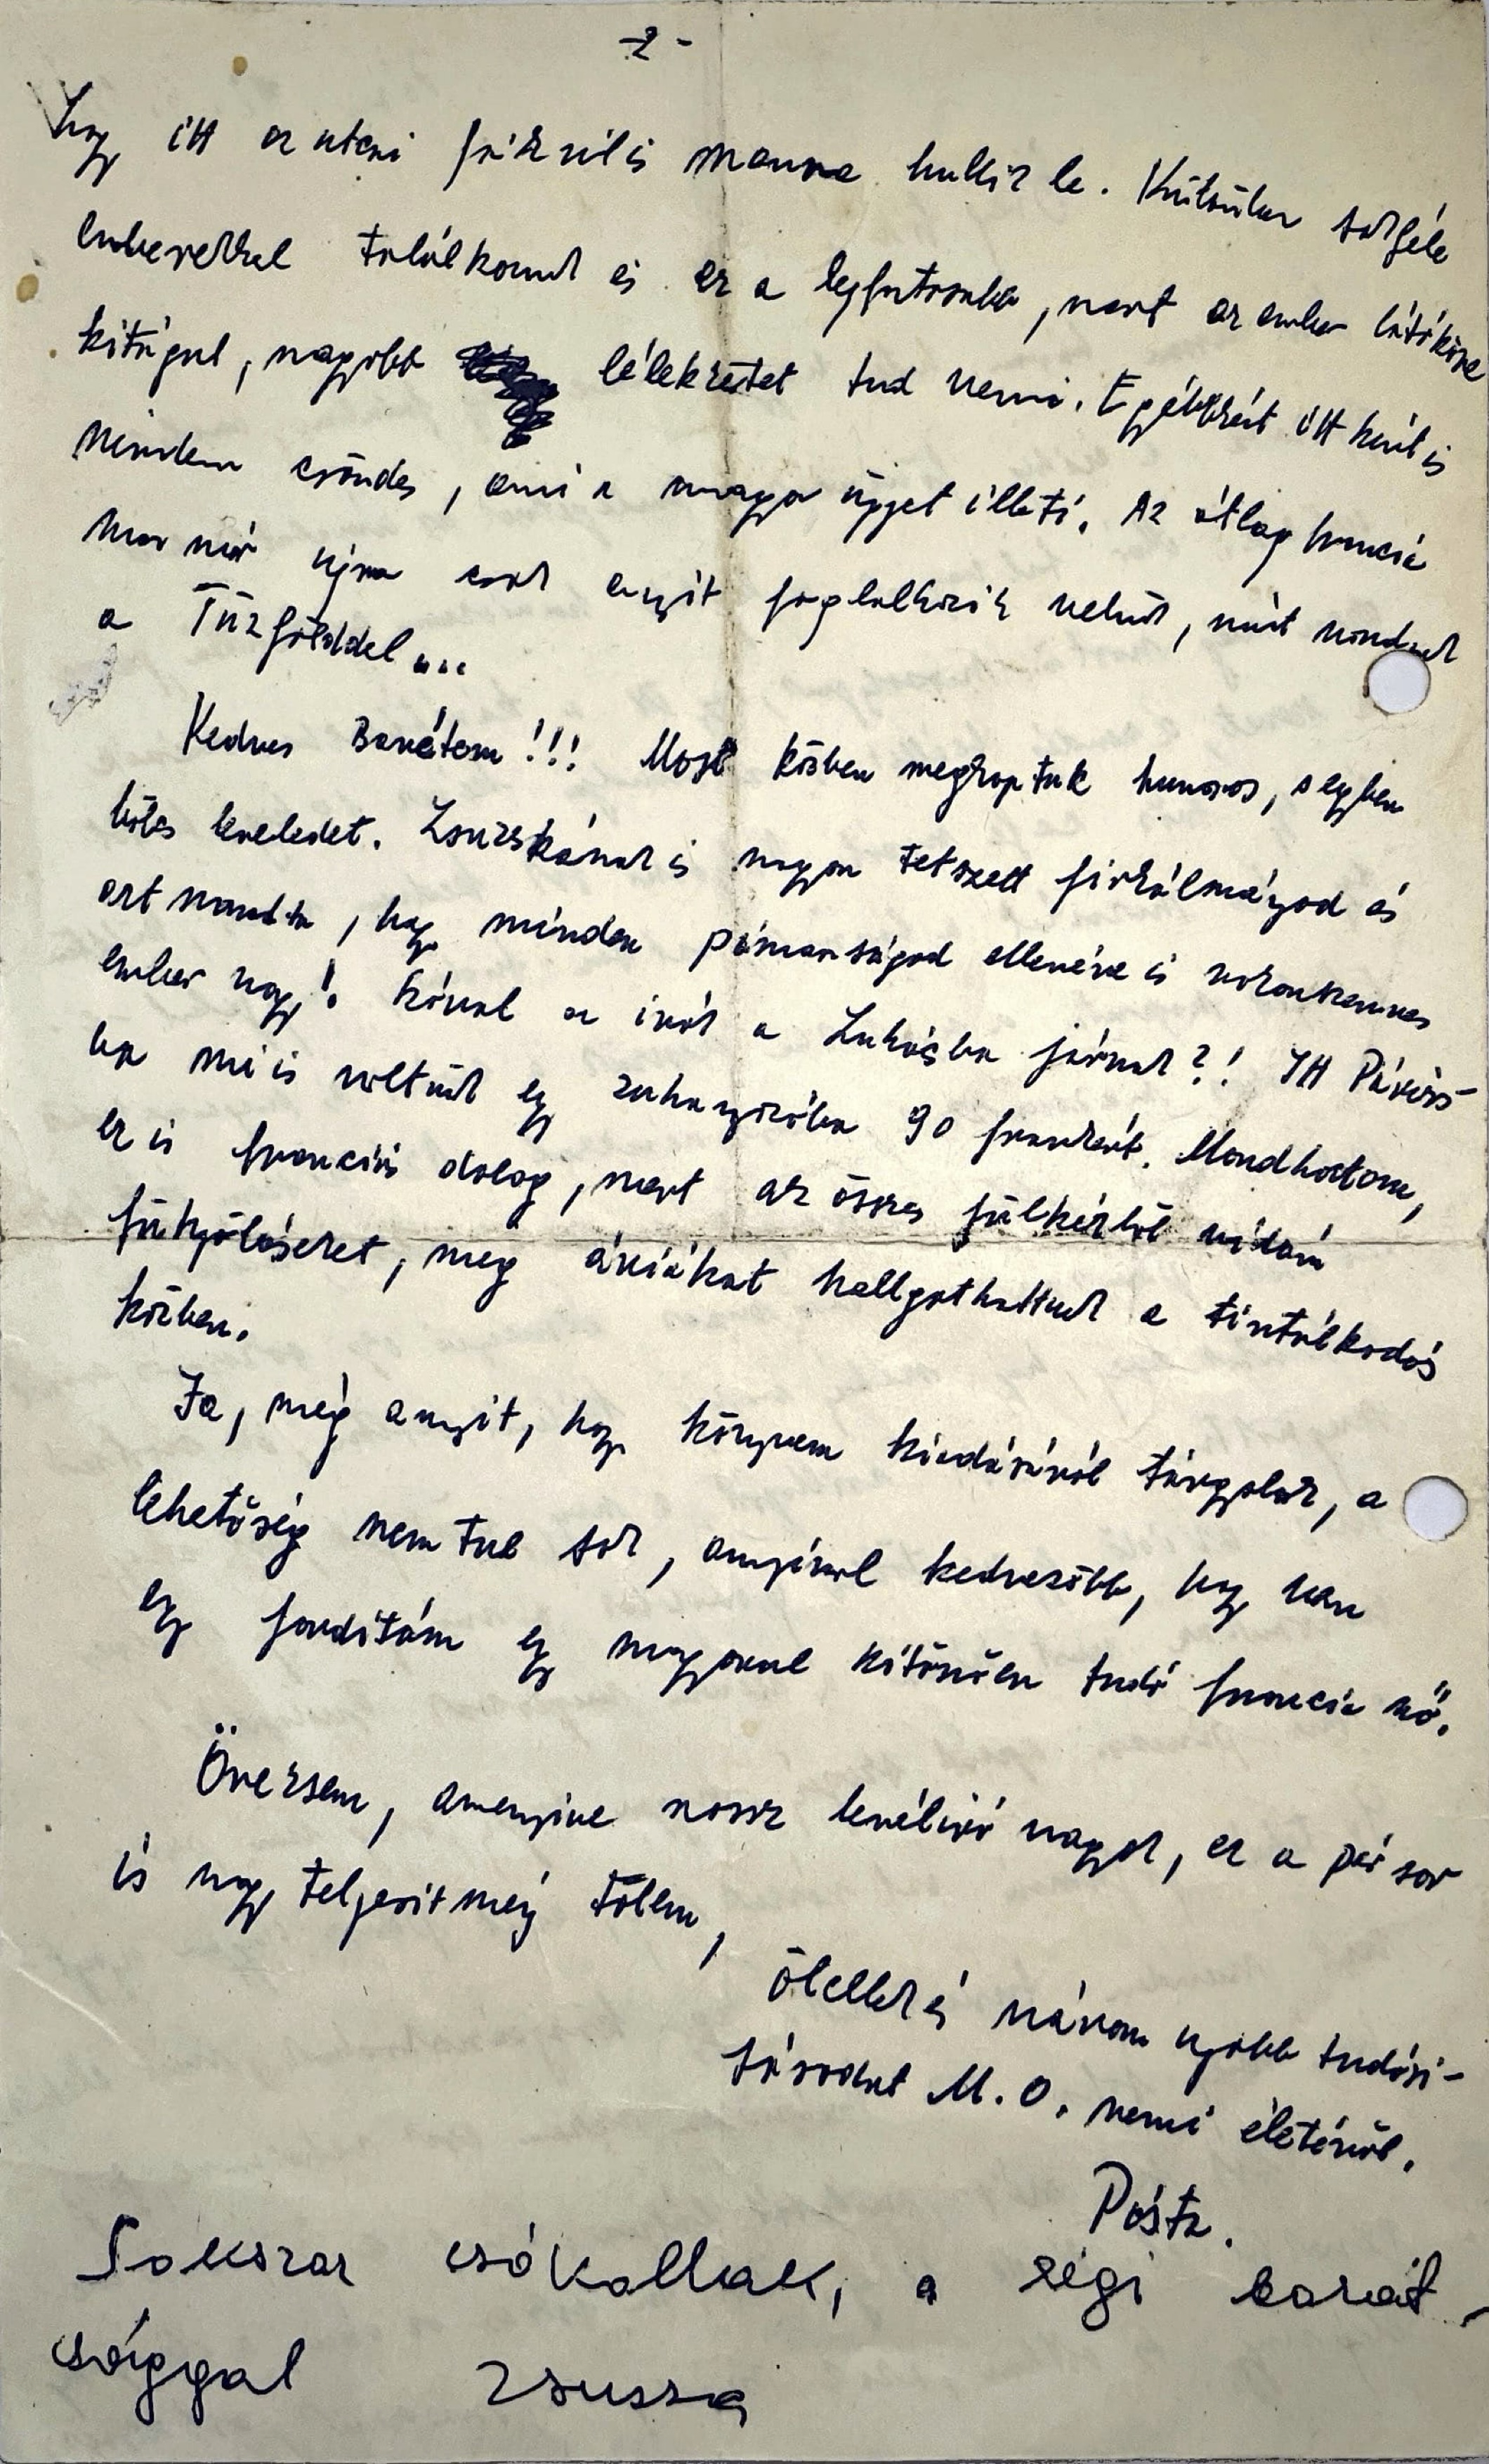 -2-
hogy itt az utcai fákról is manna hullik le. Különben sokféle
emberekkel találkozunk és ez a legfontosabb, mert az ember látóköre
kitágul, nagyobb lélekzetet tud venni. Egyébként itt kint is
minden csöndes, ami a magyar ügyet illeti. Az átlag francia
ma már újra csak annyit foglalkozik velünk, mint mondjuk
a Tűzfölddel...
Kedves Barátom!!! Most közben megkaptuk humoros, s egyben
bölcs leveledet. Zsuzskának is nagyon tetszett firkálmányod és
azt mondta, hogy minden pimaszságod ellenére is rokonszenves
ember vagy! Kóval az írók a Lukácsba járnak?! Itt Párizs-
ba mi is voltunk egy zuhanyzóba 90 frankért. Mondhatom,
ez is franciás dolog, mert az összes fülkéből vidám
fütyöléseket, meg áriákat hallgathattunk a tisztálkodás
közben.
Ja, még annyit, hogy könyvem kiadásáról tárgyalok, a
lehetőség nem túl sok, annyival kedvezőbb, hogy van
egy fordítóm egy magyarul kitűnően tudó francia nő.
Öregem, amennyire rossz levélíró vagyok, ez a pár sor
is nagy teljesítmény tőlem,
ölellek és várom ujabb tudósí-
tásodat M.O. nemi életéről.
Pista.
Sokszor csókollak, a régi barát-
sággal Zsuzsa